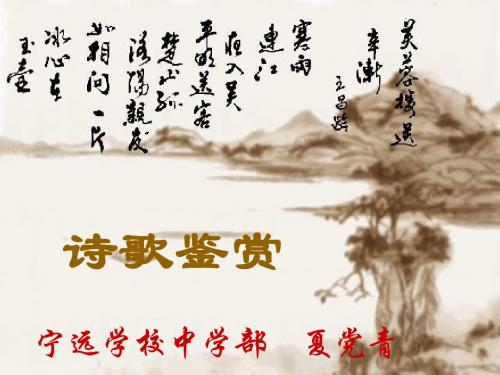 芙蓉楼送
辛漸
王昌龄
寒雨
連江
夜入吴
平明送客
楚山孤
洛陽親友
如相問 一片
冰心在
玉壶
诗歌鉴赏
宁远学校中学部 夏党青